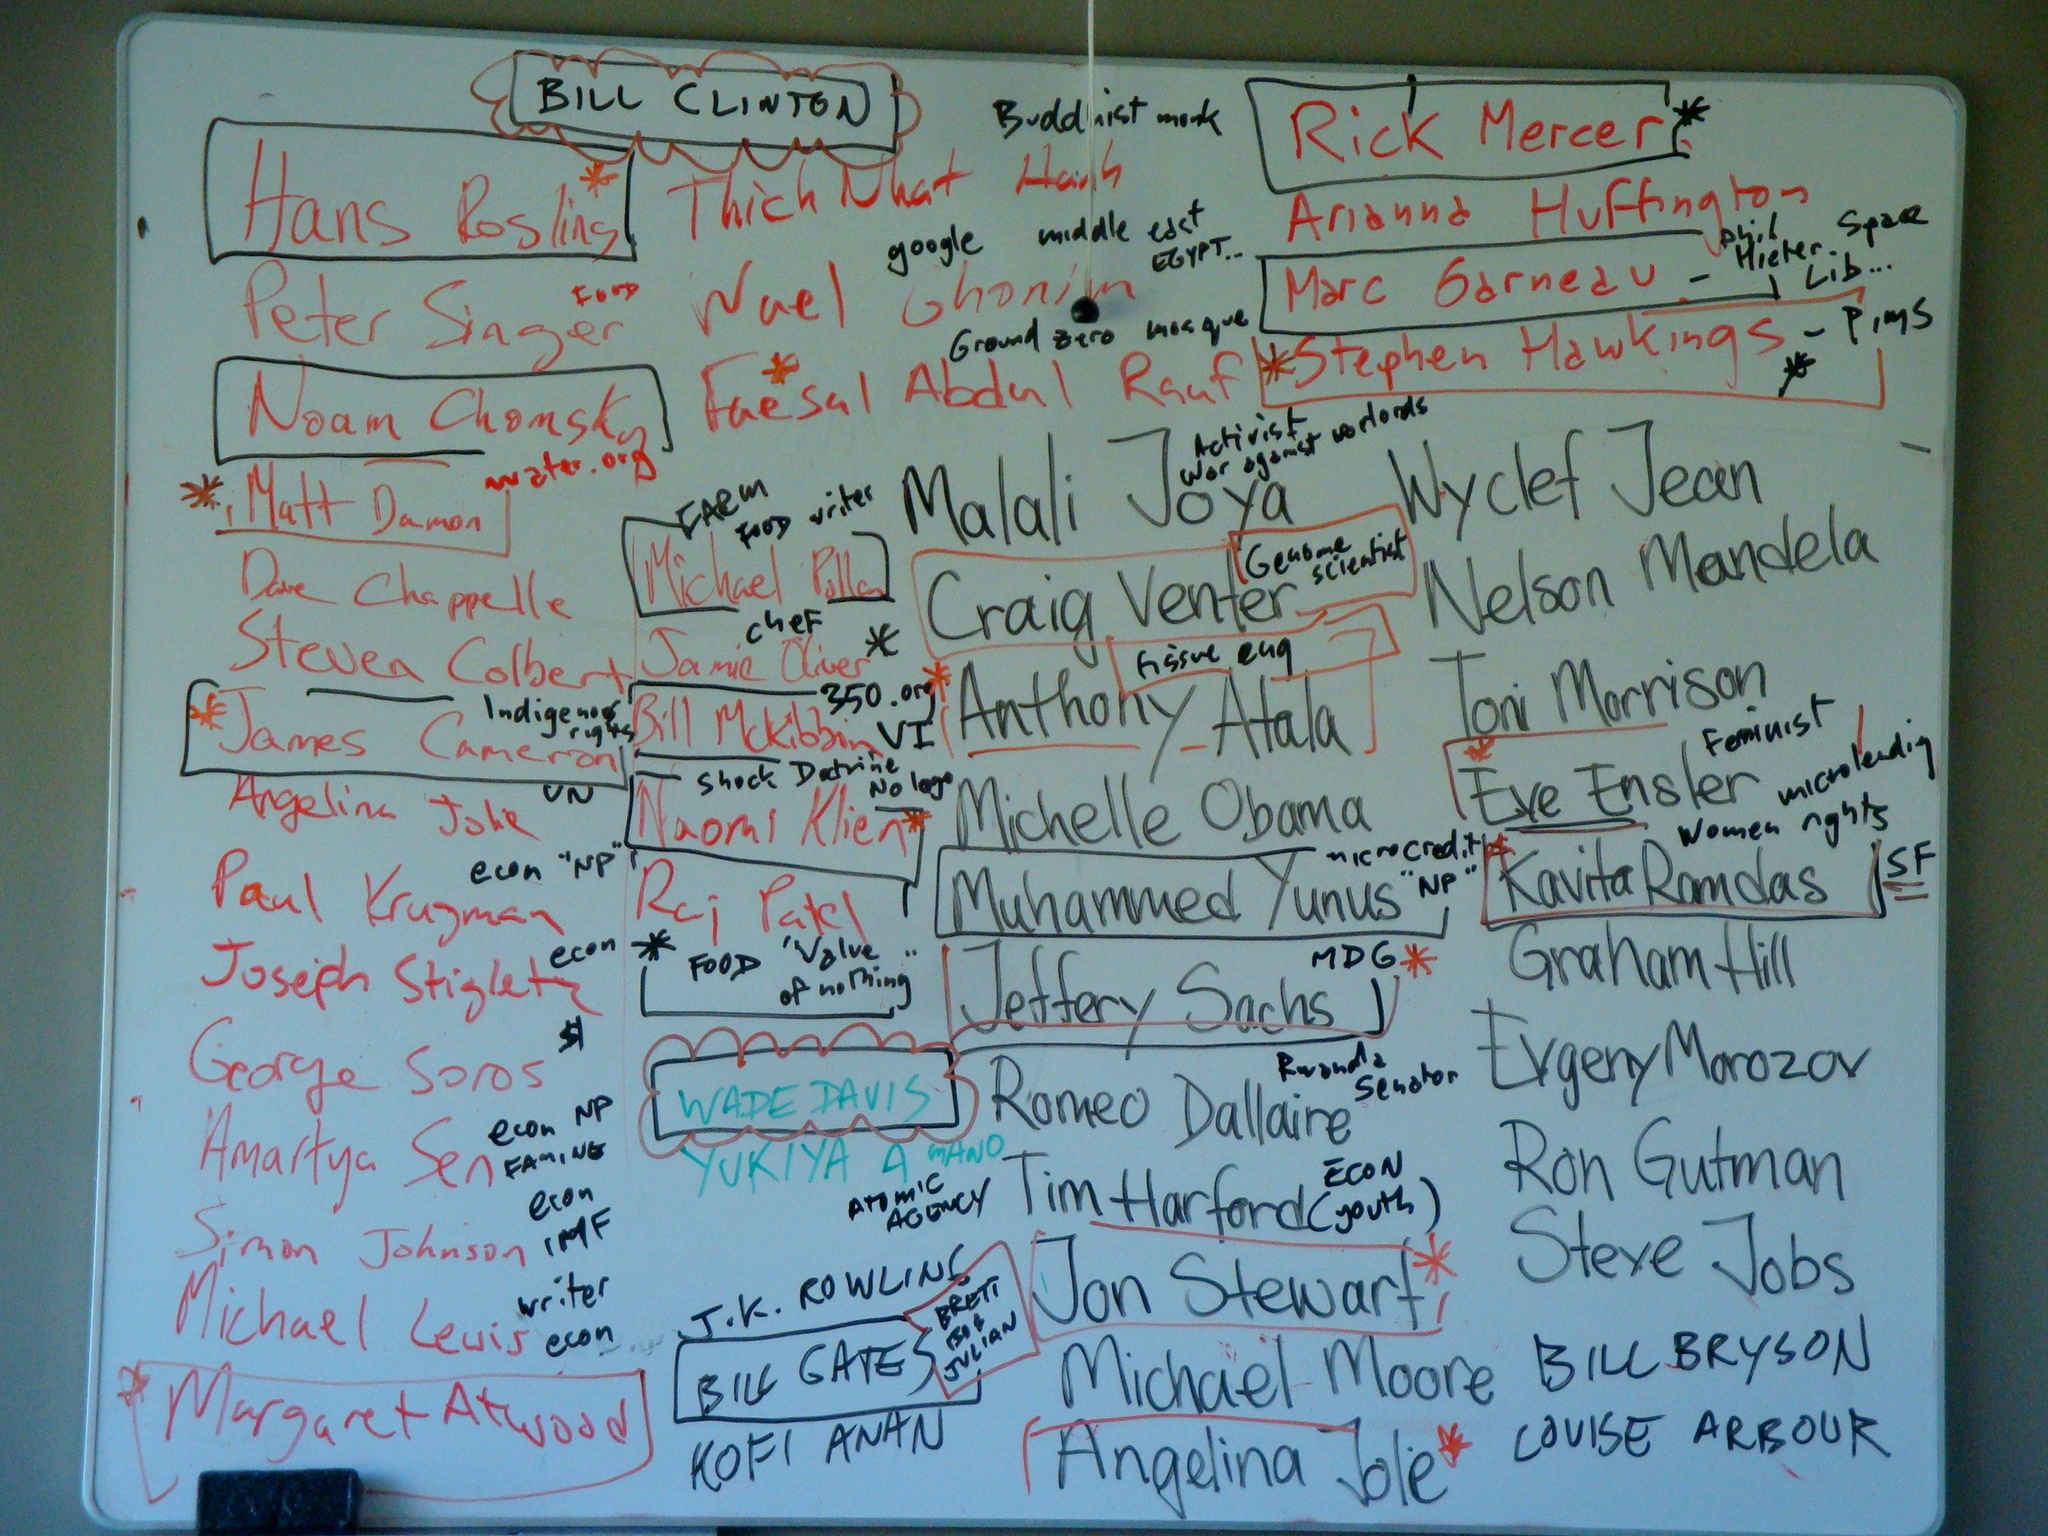 BILL CLINTON
Hans Rosling
Peter Singer
FOOD
Noam Chomsky
water.org
Matt Damon
Dave Chappelle
Steven Colbert
Indigenous
rights
James Cameron
Angelina Jolie
UN
econ "NP"
Paul Krugman
econ
Joseph Stigletz
George Soros
$
econ NP
Amartya Sen
FAMINE
econ
Simon Johnson
IMF
writer
Michael Lewis
econ
Margaret Atwood
Buddhist monk
Thich Nhat Hanh
google middle east
EGYPT...
Wael Ghonim
Ground zero mosque
Faesal Abdul Rauf
FARM
FOOD writer
Michael Pollan
chef
Jamie Oliver
350.org
Bill McKibbin
VI
Shock Doctrine
No logo
Naomi Klien
Raj Patel
FOOD "Value
of nothing"
WADE DAVIS
YUKIYA AMANO
ATOMIC
AGENCY
J.K. ROWLING
BILL GATES
JULIAN
KOFI ANAN
Activist
war against warlords
Malali Joya
Genome
scientist
Craig Venter
tissue eng
Anthony Atala
Michelle Obama
microcredit
Muhammed Yunus "NP"
MDG
Jeffery Sachs
Rwanda
Senator
Romeo Dallaire
ECON
Tim Harford (youth)
Jon Stewart
Michael Moore
Angelina Jolie
Rick Mercer
Arianna Huffington
Space
Lib...
Marc Garneau -
Stephen Hawkings - PIMS
Wyclef Jean
Nelson Mandela
Toni Morrison
Feminist
Eve Ensler
microlending
Women rights
Kavita Ramdas
SF
Graham Hill
Evgeny Morozov
Ron Gutman
Steve Jobs
BILL BRYSON
LOUISE ARBOUR